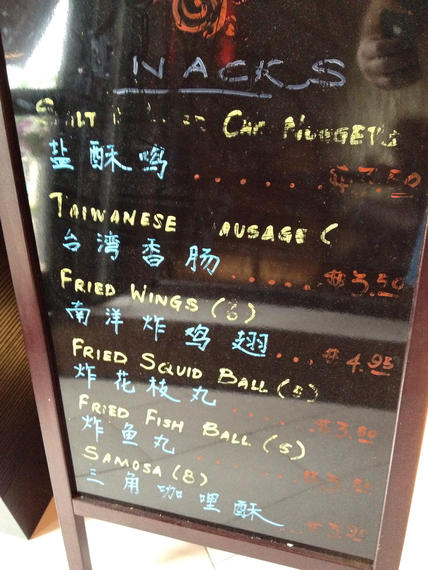 NACKS
SALT CHK NUGGETS
盐酥鸡
TAIWANESE AUSAGE (
台湾香肠 $3.50
FRIED WINGS (6)
南洋炸鸡翅 $4.95
FRIED SQUID BALL (5)
炸花枝丸
FRIED FISH BALL (5)
炸鱼丸
SAMOSA (8)
三角咖哩酥